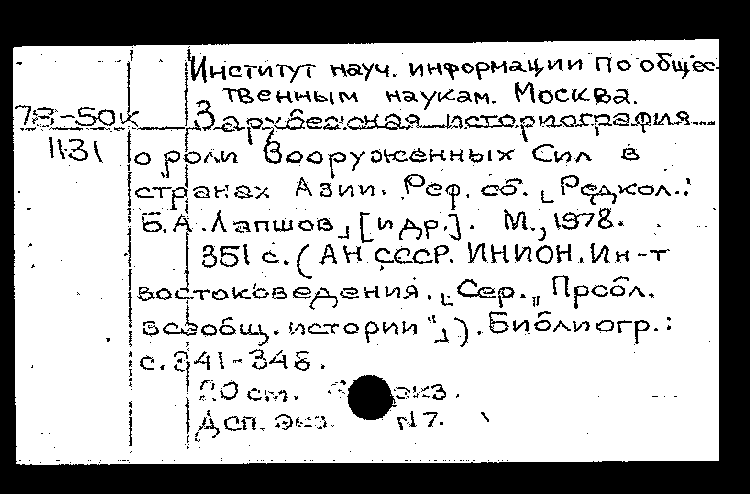 Институт науч. информации по общес-
твенным наукам. Москва.
78-50к Зарубежная историография
1131 о роли Вооруженных Сил в
странах Азии. Реф. сб. [Редкол.:
Б.А. Лапшов] [и др.]. М., 1978.
351 с. (АН СССР. ИНИОН. Ин-т
востоковедения. [Сер. „Пробл.
всеобщ. истории"]). Библиогр.:
с. 341-348.
20 см. экз.
Дсп. Экз. N7.